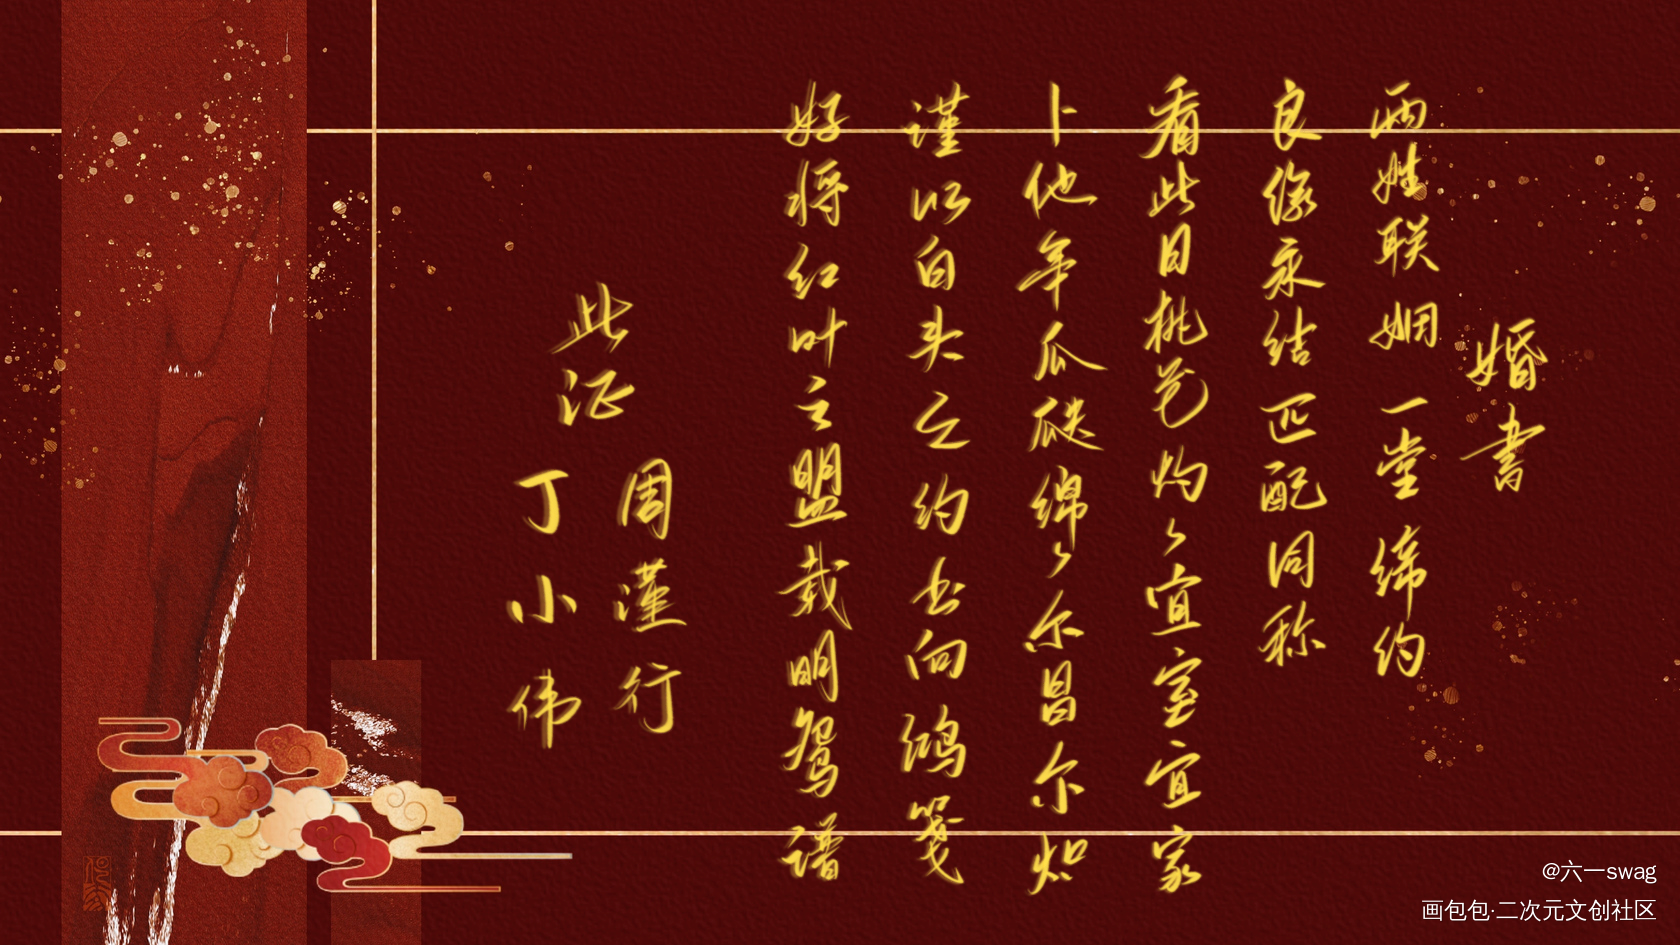 婚书
两姓联姻一堂缔约
良缘永结匹配同称
看此日桃花灼灼宜室宜家
卜他年瓜瓞绵绵尔昌尔炽
谨以白头之约书向鸿笺
好将红叶之盟载明鸳谱
此证
周谨行
丁小伟
@六一swag
画包包·二次元文创社区